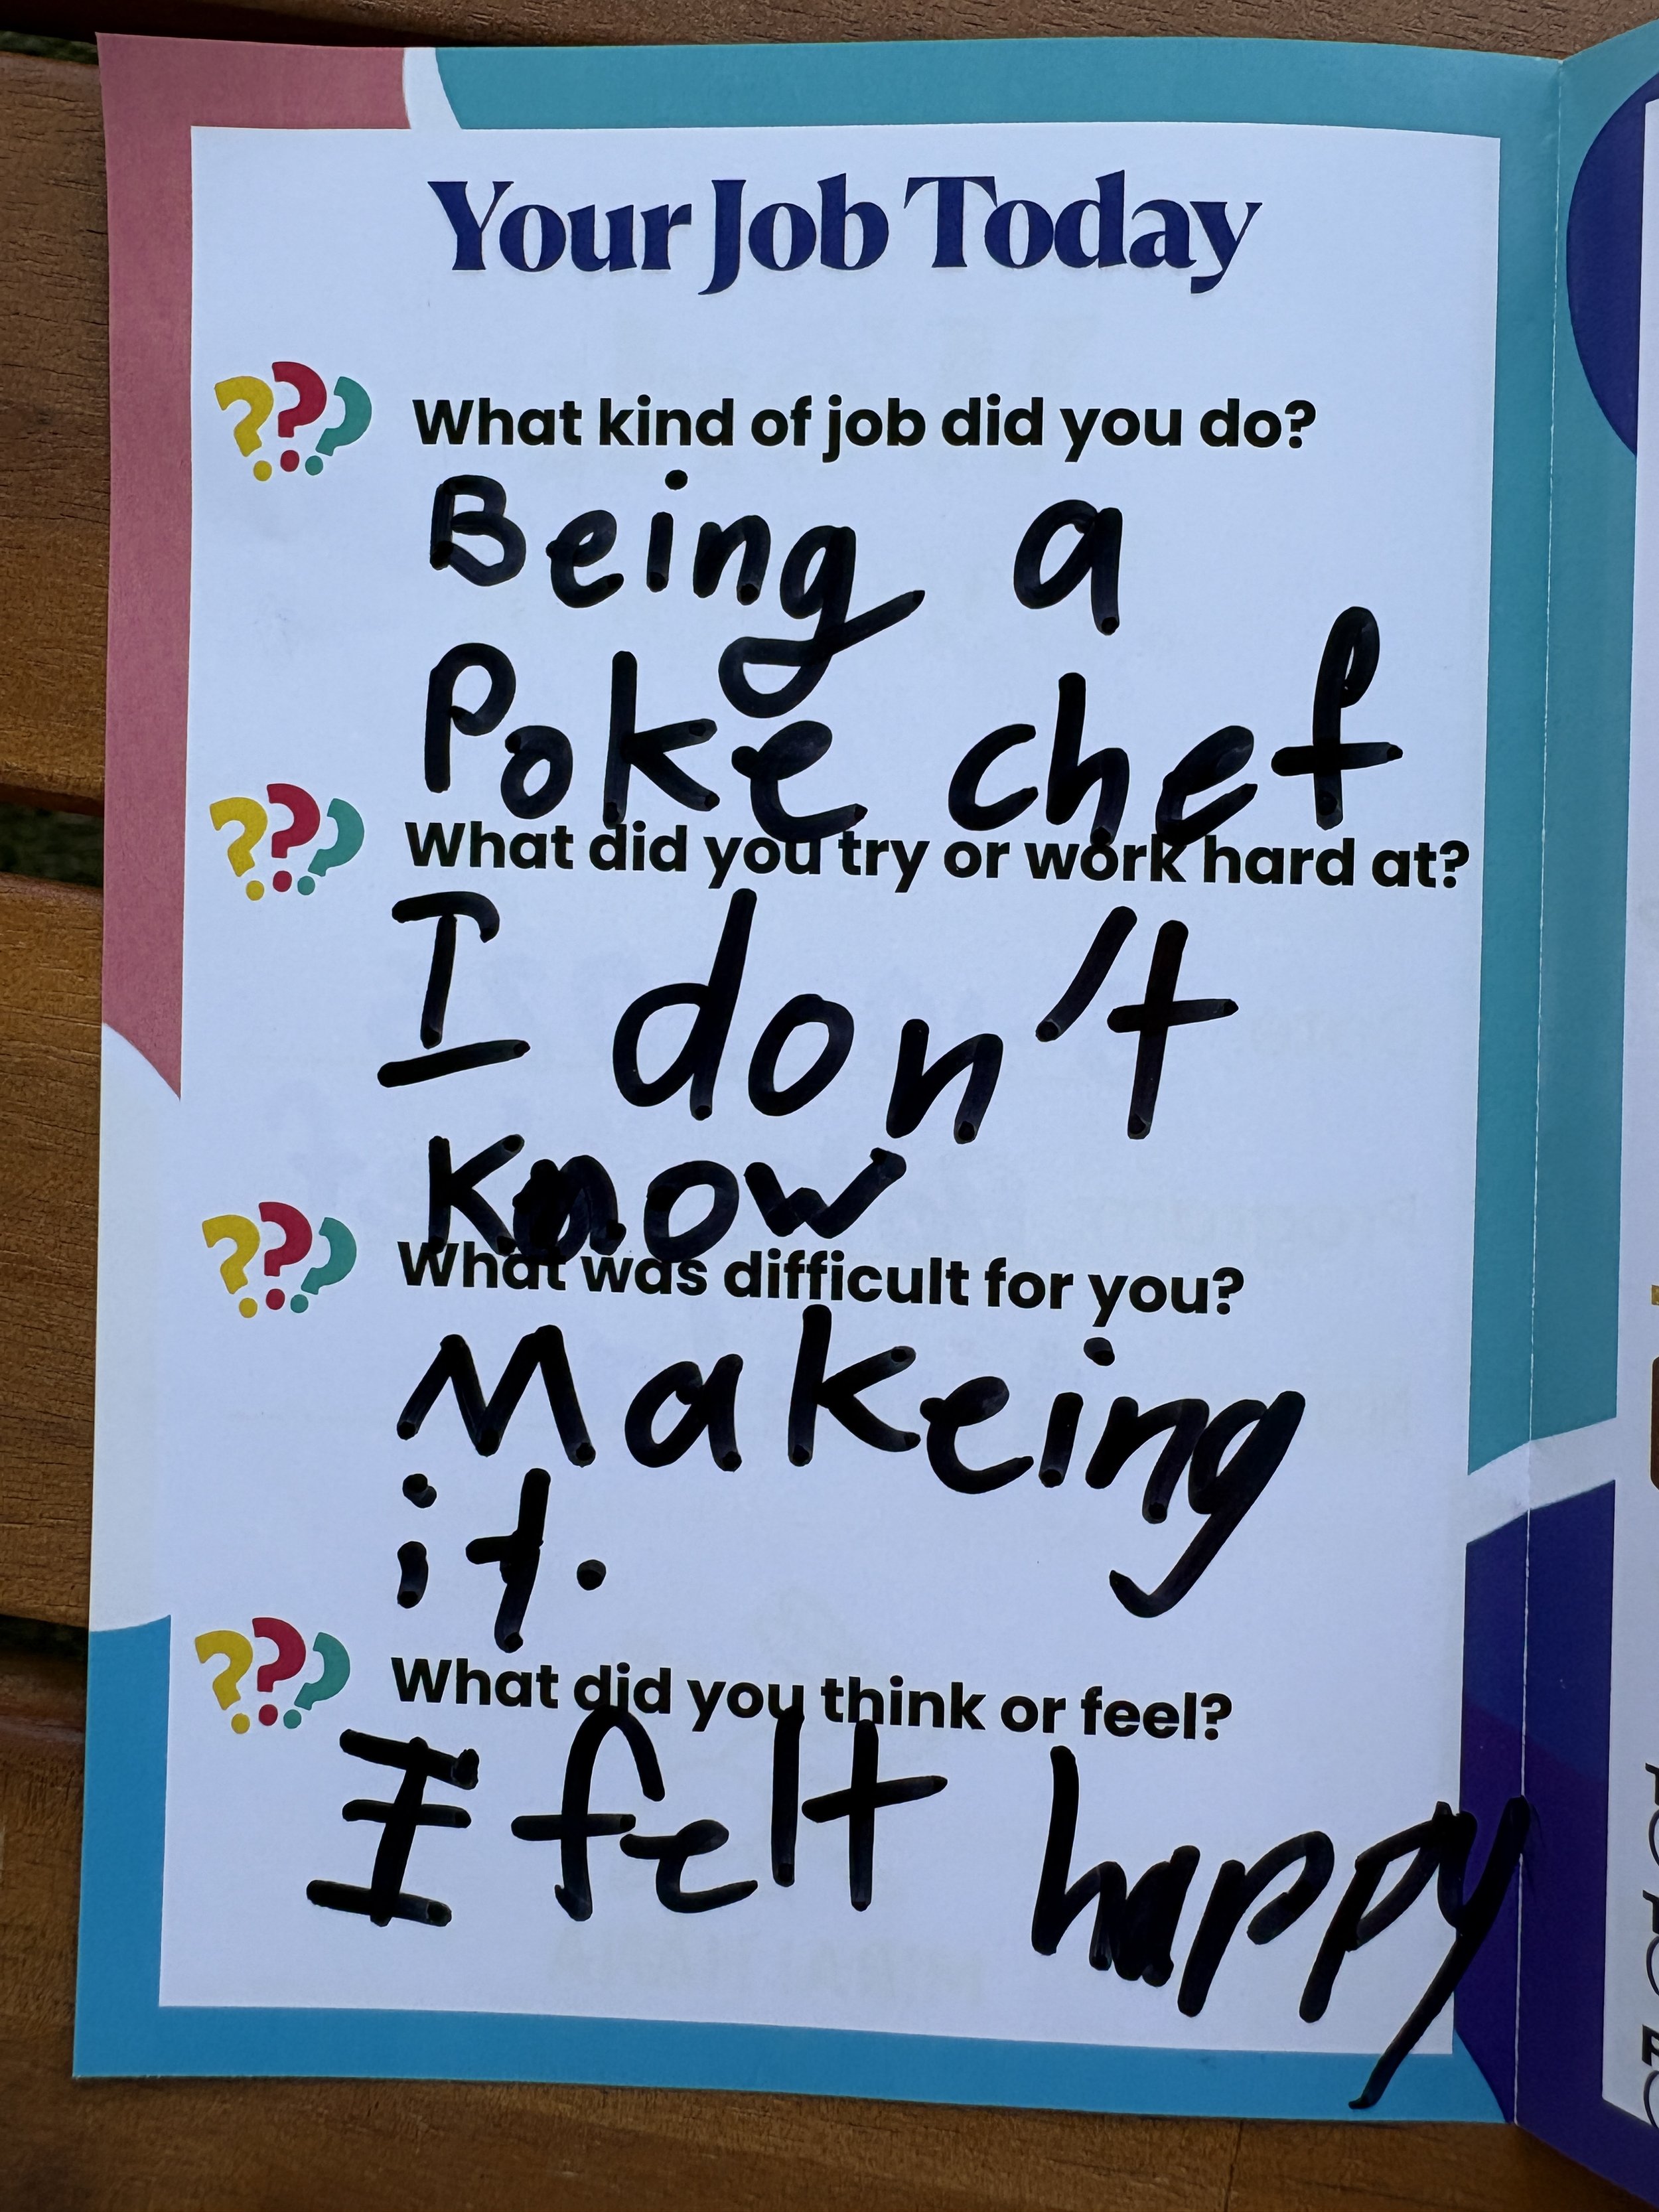 Your Job Today
What kind of job did you do?
Being a
Poke chef
What did you try or work hard at?
I don't
Know
What was difficult for you?
Makeing
it.
What did you think or feel?
I felt happy